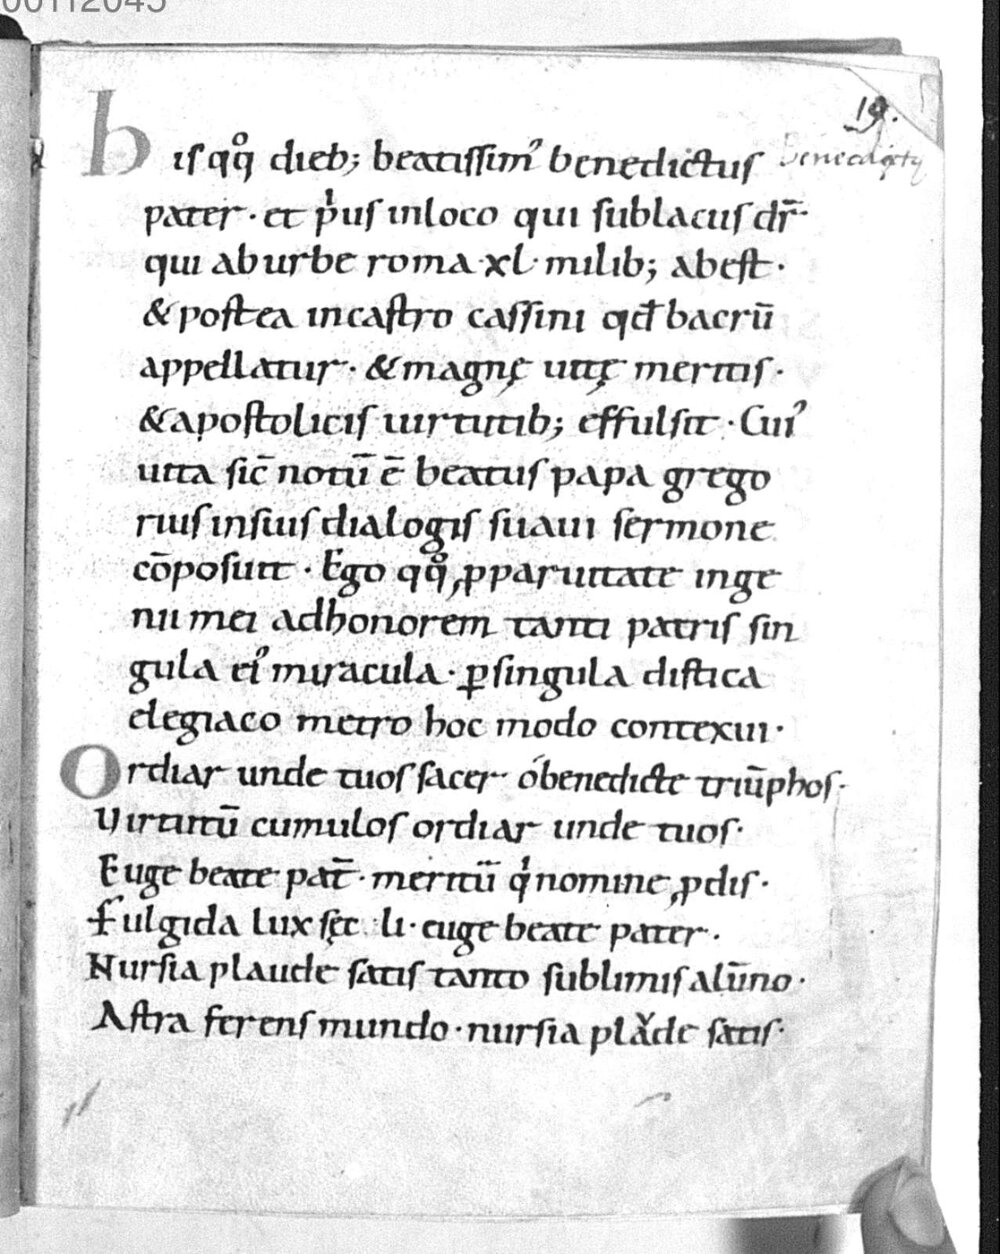 00112045
19.
his qͦq dieb; beatissimꝰ benedictus
benedicty
pater · et pͥus inloco qui sublacus dr̄ ·
qui aburbe roma · xl · milib; abest ·
& postea incastro cassini qđ bacrū
appellatur · & magnę uitę meritis ·
& apostolicis uirtutib; effulsit · Cuiꝰ
uita sic̄ notū ē beatus papa grego
rius insuis dialogis suaui sermone
cōposuit · Ego qͦq ꝓparuitate inge
nii mei adhonorem tanti patris sin
gula eiꝰ miracula · ꝑsingula distica
elegiaco metro hoc modo contexui ·
Ordiar unde tuos sacer · óbenedicte triūphos ·
Virtutū cumulos ordiar unde tuos ·
Euge beate pat̄ · meritū qͥ nomine ꝓdis ·
Fulgida lux sęc li · euge beate pater ·
Nursia plaude satis tanto sublimis alūno ·
Astra ferens mundo · nursia plaͮde satis ·